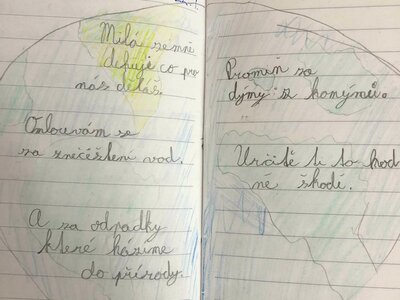 Milá země
děkuje co pro
nás deláš.
Omlouvám se
za zněčěštení vod.
A za odpadky
které házíme
do přírody.
Promiň za
dýmy z komýnů.
Určitě ti to hod
ně škodí.